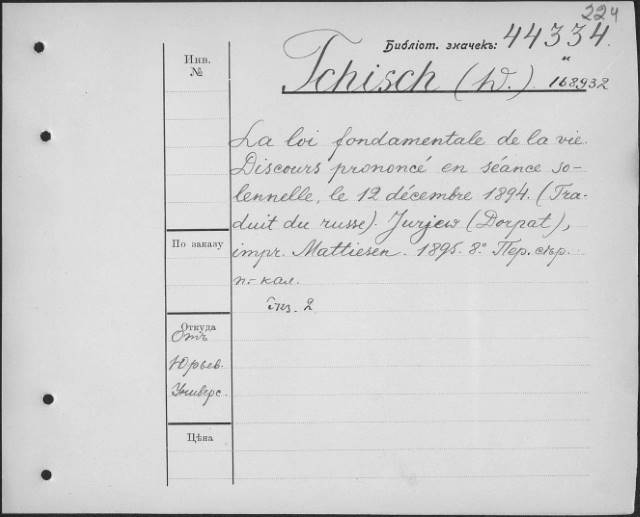 224
Библіот. значекъ: 44334.
Инв.
№
Tchisch (W.). " 168932
La loi fondamentale de la vie.
Discours prononcé en séance so-
lennelle, le 12 décembre 1894. (Tra-
duit du russe). Jurjew (Dorpat),
По заказу
impr. Mattiesen. 1895. 8.° Пер. сѣр.
п.-кал.
экз. 2
Откуда
Отъ
Юрьев.
Универс.
Цѣна